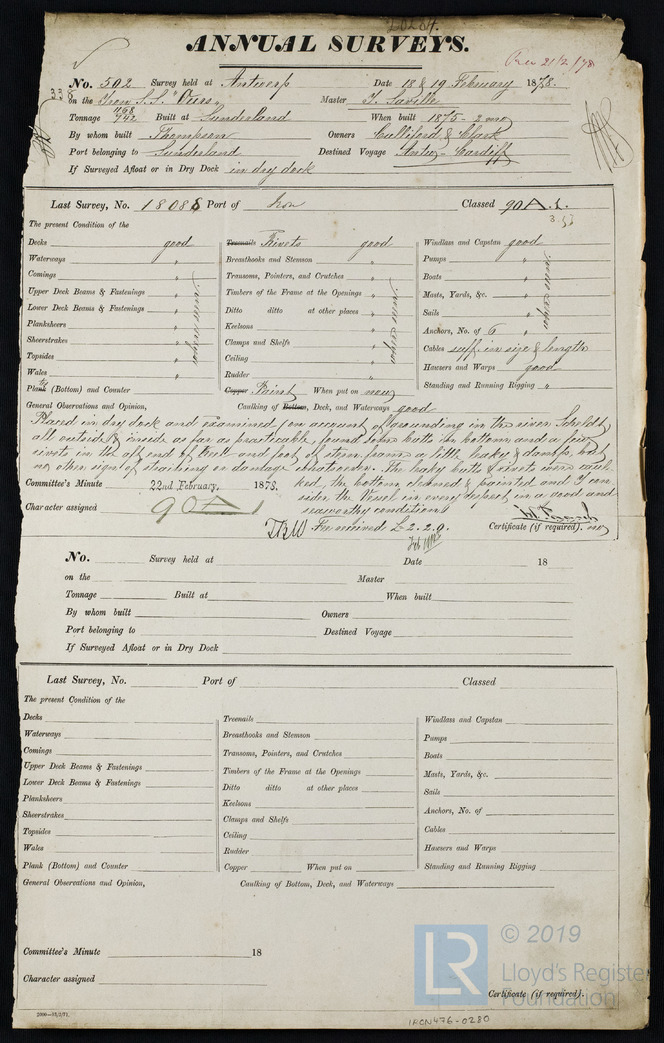 20284.
ANNUAL SURVEYS.
Rec 21/2/78
No. 502 Survey held at Antwerp Date 18 & 19 February 1878.
335
on the Iron S.S. "Ouse" Master T. Saville
1168
Tonnage 742 Built at Sunderland When built 1875 - 3 mo
By whom built Thompson Owners Culliford & Clark
Port belonging to Sunderland Destined Voyage Antw - Cardiff
If Surveyed Afloat or in Dry Dock in dry dock
Last Survey, No. 18088 Port of Lon Classed 90 A.1.
3.53
The present Condition of the
Decks good Treenails Rivets good Windlass and Capstan good
Waterways " Breasthooks and Stemson " Pumps "
Comings " Transoms, Pointers, and Crutches " Boats "
Upper Deck Beams & Fastenings " Timbers of the Frame at the Openings " Masts, Yards, &c. "
Lower Deck Beams & Fastenings " Ditto ditto at other places " Sails "
Planksheers " Keelsons " Anchors, No. of 6 "
Sheerstrakes " Clamps and Shelfs " Cables suff. in size & length
Topsides " Ceiling " Hawsers and Warps good
Wales " Rudder " Standing and Running Rigging "
where seen where seen where seen
Plank (Bottom) and Counter " Copper Paint When put on new
General Observations and Opinion, Caulking of Bottom, Deck, and Waterways good
Placed in dry dock and examined, on account of grounding in the river Scheldt
all outside & inside as far as practicable, found some butts in bottom and a few
rivets in the aft end of keel and foot of stern frame a little leaky & damp, but
no other sign of straining or damage whatsoever. The leaky butts & rivets were caul-
Committee's Minute 22nd February, 1878. ked, the bottom cleaned & painted and I con-
sider the Vessel in every respect in a good and
Character assigned 90 A 1 seaworthy condition
Fee received £2.2.0. Certificate (if required). no
No. Survey held at Date 18
on the Master
Tonnage Built at When built
By whom built Owners
Port belonging to Destined Voyage
If Surveyed Afloat or in Dry Dock
Last Survey, No. Port of Classed
The present Condition of the
Decks Treenails Windlass and Capstan
Waterways Breasthooks and Stemson Pumps
Comings Transoms, Pointers, and Crutches Boats
Upper Deck Beams & Fastenings Timbers of the Frame at the Openings Masts, Yards, &c.
Lower Deck Beams & Fastenings Ditto ditto at other places Sails
Planksheers Keelsons Anchors, No. of
Sheerstrakes Clamps and Shelfs Cables
Topsides Ceiling Hawsers and Warps
Wales Rudder Standing and Running Rigging
Plank (Bottom) and Counter Copper When put on
General Observations and Opinion, Caulking of Bottom, Deck, and Waterways
Committee's Minute 18
Character assigned
Certificate (if required).
LR © 2019
Lloyd's Register
Foundation
IRON476-0280